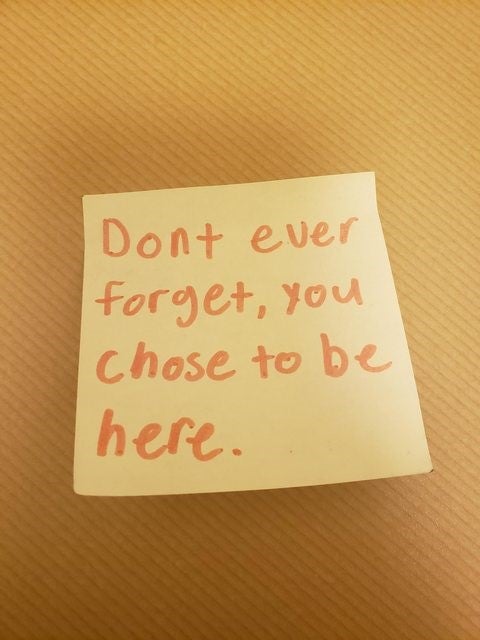 Dont ever
forget, you
chose to be
here.